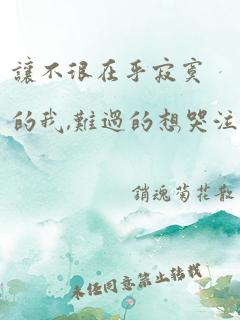 讓不很在乎寂寞
的我,難過的想哭泣
銷魂菊花散
未经同意禁止转载